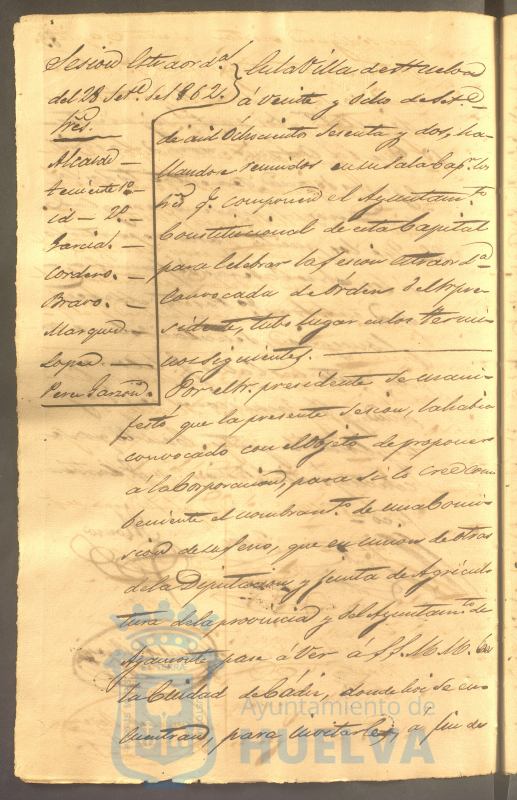 Sesion Extraord.ª
del 28 Set.e de 1862.
Sres.
Alcalde —
teniente 1º —
id — 2º —
Garcia. —
Cordero. —
Bravo. —
Marquez —
Lopez. —
Perez Garzon.
En la Villa de Huelva
á Veinte y Ocho de Set.e
de mil Ochocientos Sesenta y dos, ha-
llandose reunidos en su Sala Cap.r los
Sres. q.e componen el Ayuntam.to
Constitucional de esta Capital
para celebrar la Sesion extraord.ª
Convocada de Orden del Sr. pre-
sidente, tubo lugar en los termi-
nos siguientes. —
Por el Sr. presidente se mani-
festó que la presente sesion, la habia
convocado con el Objeto de proponer
á la Corporacion, para si lo cree con-
beniente el nombram.to de una Comi-
sion de su seno, que en union de otras
de la Diputacion y Junta de Agricul-
tura de la provincia y del Ayuntam.to de
Ayamonte, pase á Ver á SS. M.M. en
la Ciudad de Cádiz, donde hoi se en-
cuentran, para invitarles, a fin de
Ayuntamiento de
HUELVA